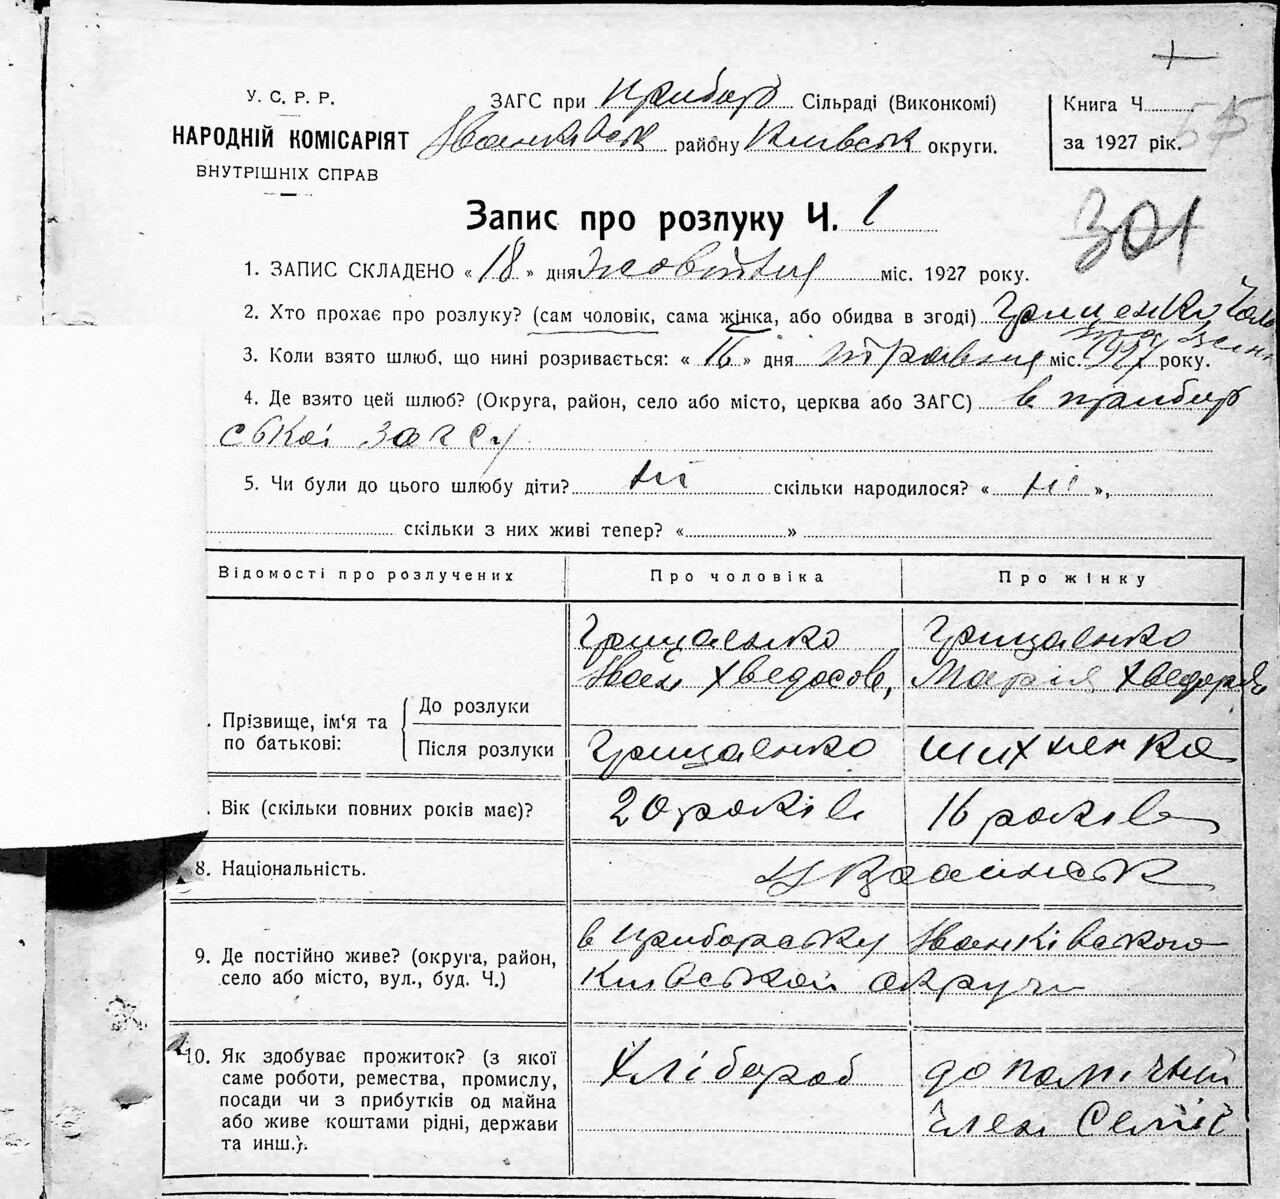 У. С. Р. Р.
НАРОДНІЙ КОМІСАРІЯТ
ВНУТРІШНІХ СПРАВ
ЗАГС при Прибор Сільраді (Виконкомі)
Іванківськ району Київськ округи.
Книга Ч. 55
за 1927 рік.
Запис про розлуку Ч. 1
301
1. ЗАПИС СКЛАДЕНО « 18 » дня Жовтня міс. 1927 року.
2. Хто прохає про розлуку? (сам чоловік, сама жінка, або обидва в згоді) Грищенко
3. Коли взято шлюб, що нині розривається: « 16 » дня травня міс. 1927 року.
4. Де взято цей шлюб? (Округа, район, село або місто, церква або ЗАГС) в прибор
ської загсу
5. Чи були до цього шлюбу діти? ні скільки народилося? « ні »,
скільки з них живі тепер? « »
Відомості про розлучених Про чоловіка Про жінку
Грищаенко Грищаенко
Іван Хведосов, Марія Хведоря
Прізвище, ім‘я та по батькові: До розлуки
Після розлуки Грищаенко Шихненко
Вік (скільки повних років має)? 20 років 16 років
8. Національність. Українськ
9. Де постійно живе? (округа, район, в Приборську Іванківського
село або місто, вул., буд. Ч.) Київської округи
10. Як здобуває прожиток? (з якої Хлібороб допомічний
саме роботи, ремества, промислу,
посади чи з прибутків од майна член Семії
або живе коштами рідні, держави
та инш.).